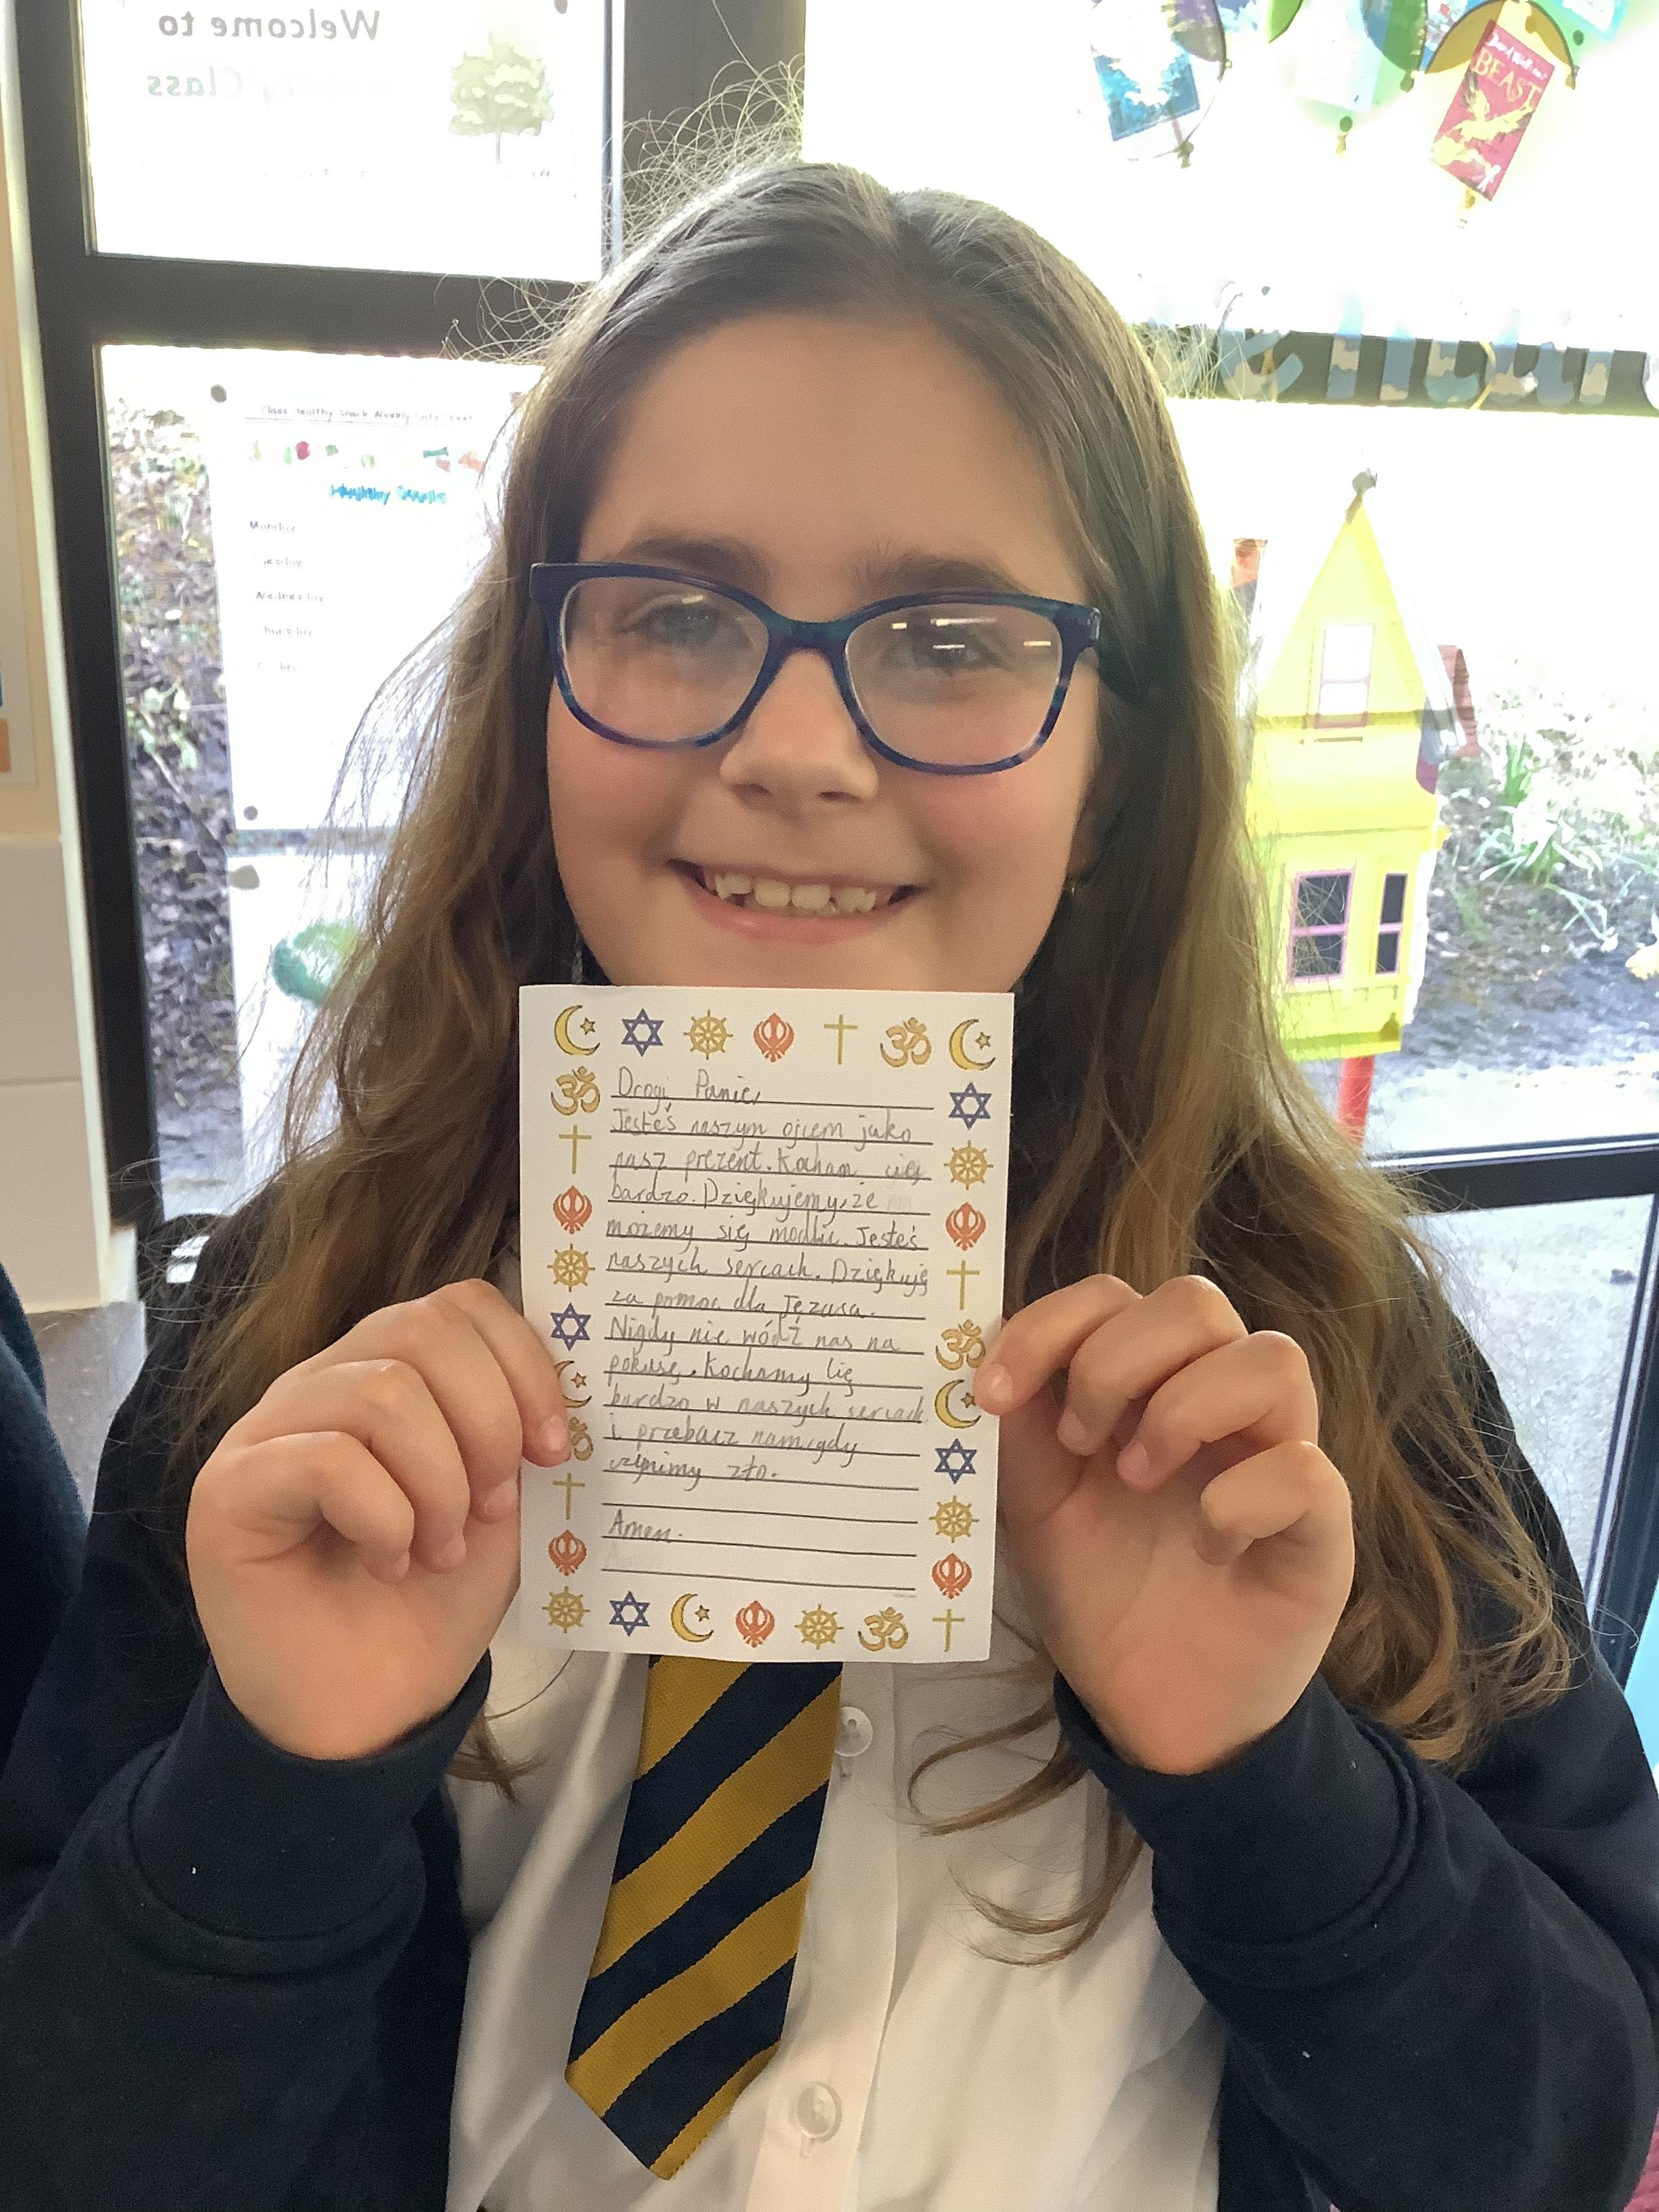 Welcome to
Class
Class Healthy Snack Weekly Data Sheet
Healthy Snacks
Monday
Wednesday
David Walliams
BEAST
Drogi Panie,
Jesteś naszym ojcem jako
nasz prezent. Kocham cię
bardzo. Dziękujemy, że
możemy się modlic. Jesteś
naszych sercach. Dziękuję
za pomoc dla Jęzusa.
Nigdy nie wódź nas na
pokusę. Kochamy Cię
bardzo w naszych sercach
i przebacz nam, gdy
czynimy zło.
Amen.